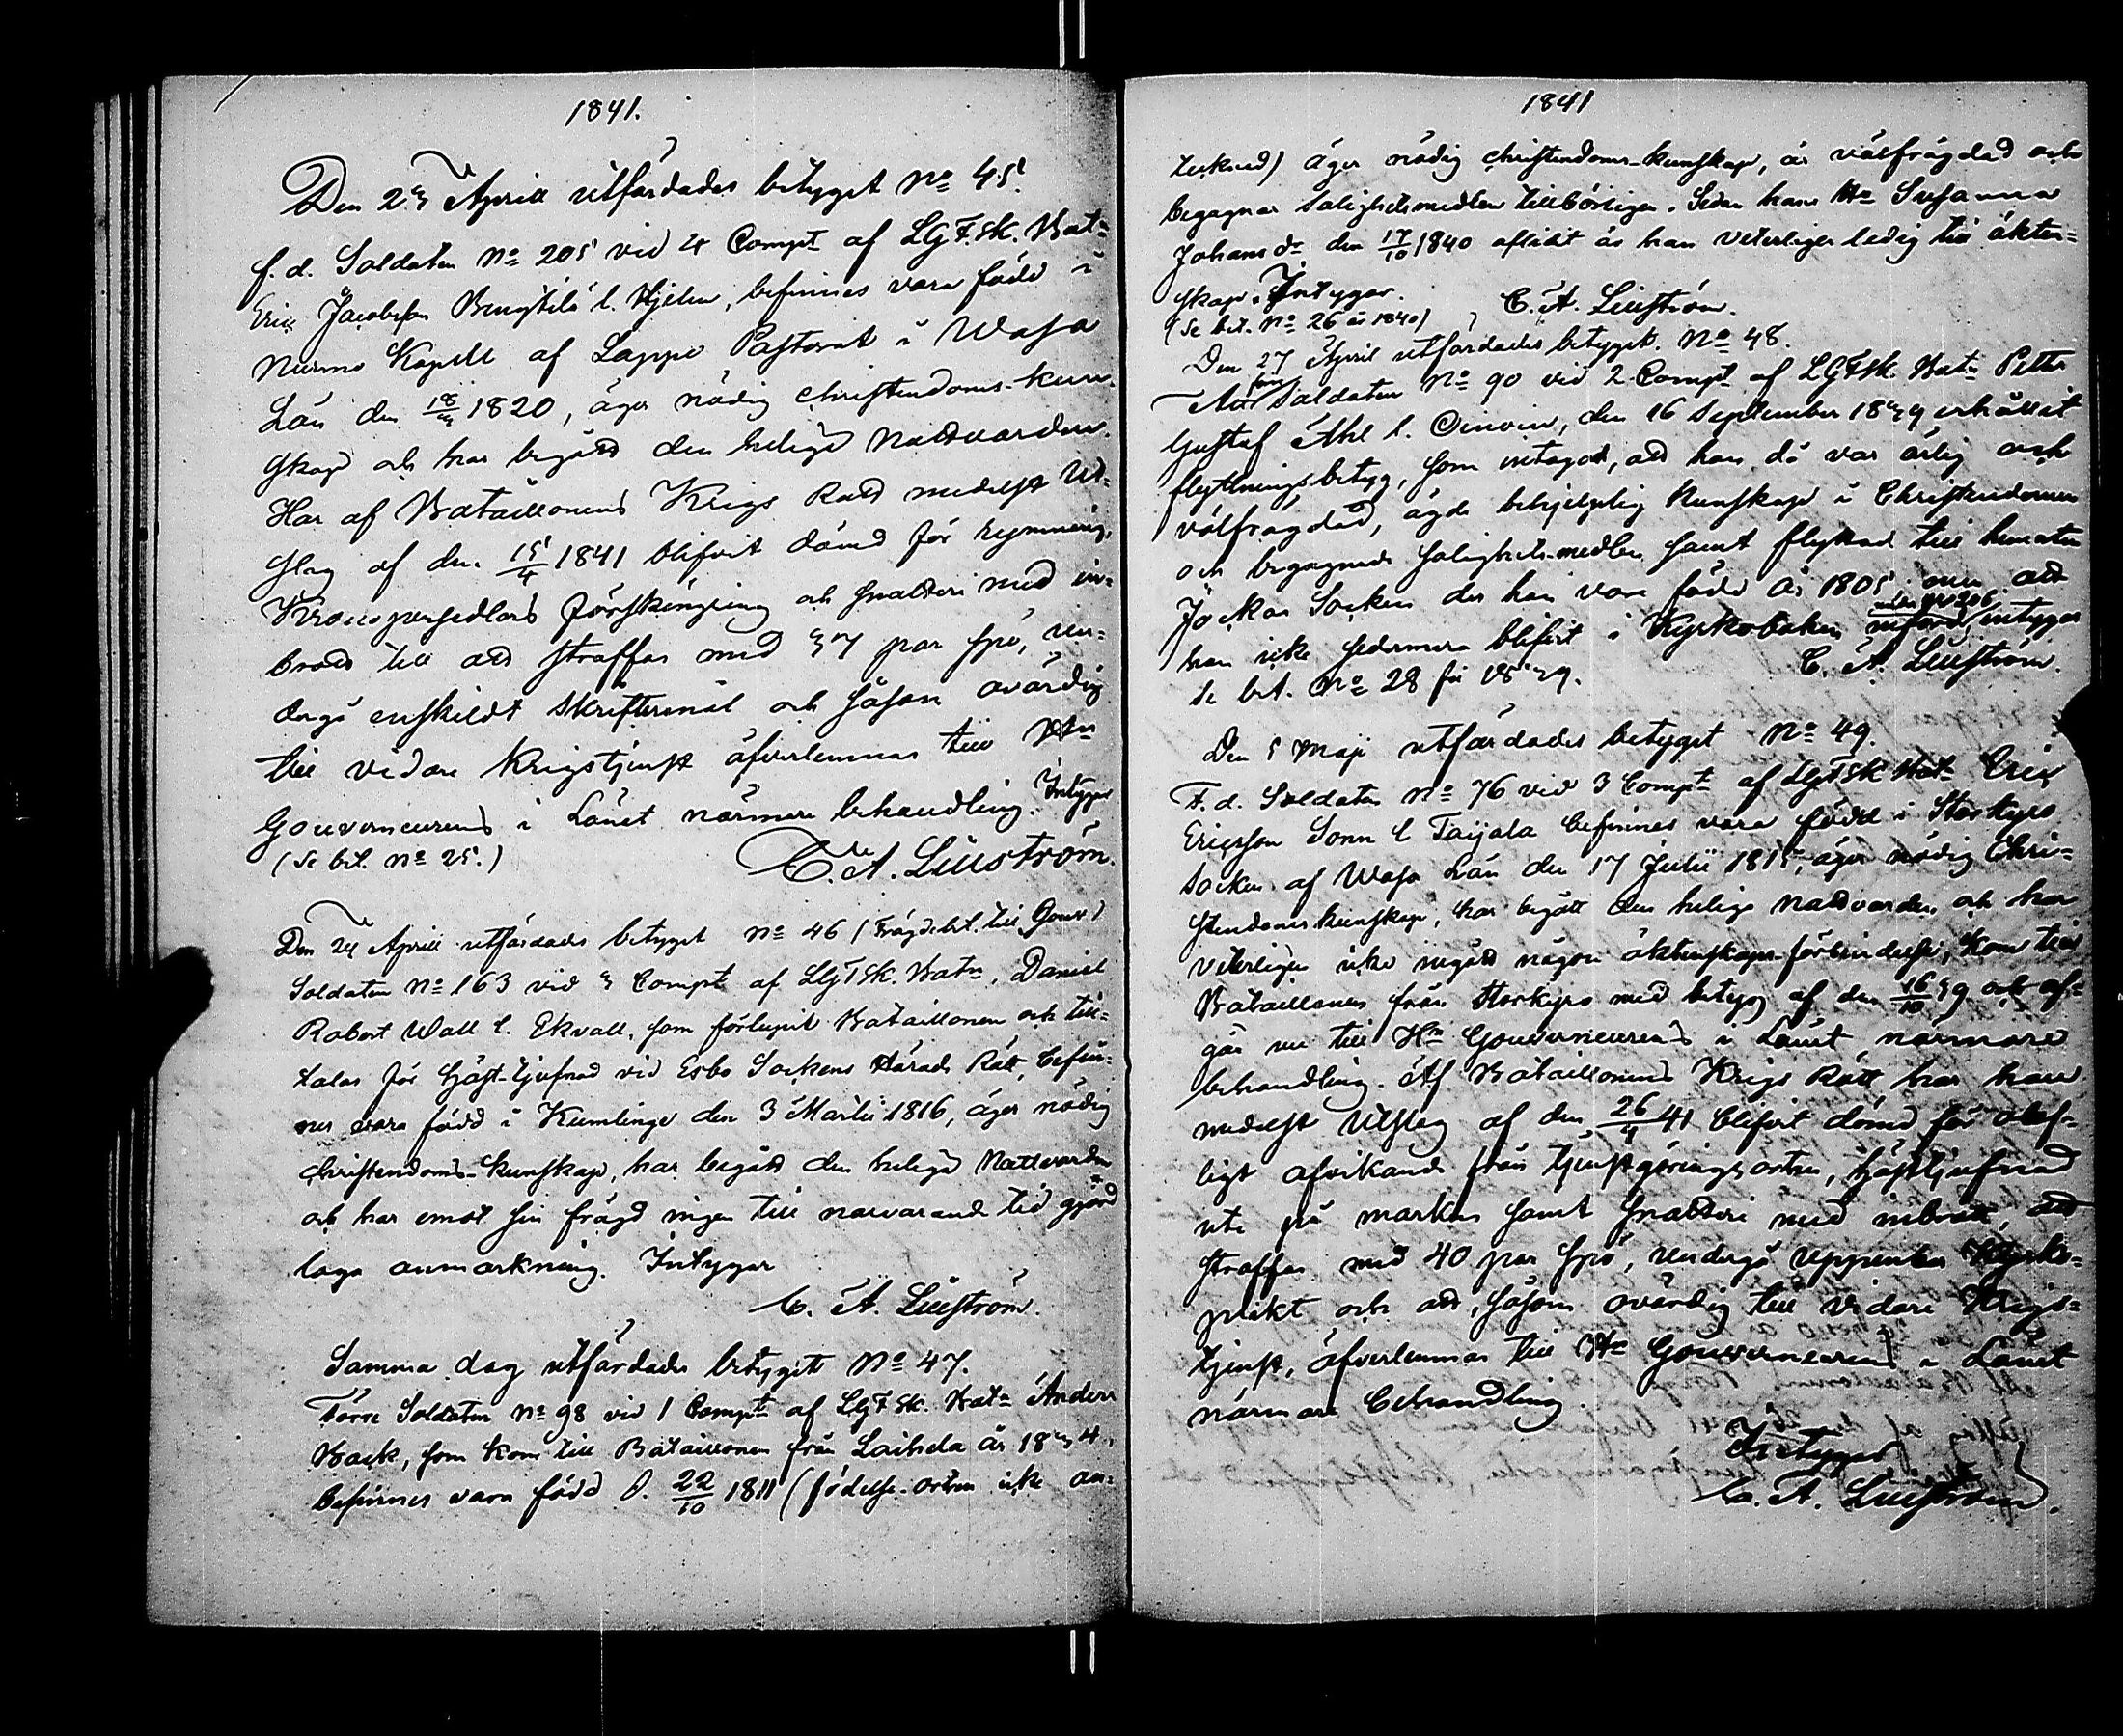 1841.
Den 23 Aprill utfärdades betyget No 45.
f. d. Soldaten No 205 vid 4 Compt af LGF.Sk. Bat=
Eric Jacobsson Bengtilä l. Hjelm, befinnes vara född i
Nurmo Kapell af Lappo Pastorat i Wasa
Län den 18/3 1820, äger nödig christendoms-kun-
skap och har begått den heliga Nattvarden.
Har af Bataillonens Krigs Rätt medelst Ut-
slag af den 15/4 1841 blifvit dömd för rymning,
Kronopersedlars förskingring och snatteri med in-
brott till att straffas med 37 par spö, un-
dergå enskildt Skriftermål och såsom ovärdig
till vidare Krigstjenst öfverlemnas till Hrn
Gouverneurens i Länet närmare behandling. Intygar
(Se bet. No 25.) C. A. Liliström.
Den 24 Aprill utfärdades betyget No 46 (Frägdebet. till Gouv.)
Soldaten No 163 vid 3 Compt af LGFSk. Batn, Daniel
Robert Wall l. Ekvall, som förlupit Bataillonen och till-
talas för häst-tjufnad vid Esbo Sockens Härads Rätt, befin-
nes vara född i Kumlinge den 3 Martii 1816, äger nödig
Christendoms-kunskap, har begått den heliga Nattvarden
och har emot sin frägd ingen till närvarande tid gjord
laga anmärkning. Intygar
C. A. Liliström.
Samma dag utfärdades betyget No 47.
Förre Soldaten No 98 vid 1 Compt af LGFSk. Batn Anders
Back, som kom till Bataillonen från Laihela år 1834,
befinnes vara född d. 22/10 1811 (födelse-orten icke an-
1841
tecknad) äger nödig christendoms-kunskap, är välfrägdad och
begagnar salighetsmedlen tillbörligen. Sedan hans Hu Susanna
Johansdr den 17/10 1840 aflidit är han veterligen ledig till äkten-
skap. Intygar.
(Se bet. No 26 år 1840) C. A. Liliström.
Den 27 April utfärdades betyget No 48.
Att förre Soldaten No 90 vid 2 Compt af LGFSk. Batn Petter
Gustaf Ahl l. Oinoin, den 16 September 1839 erhållit
flyttningsbetyg, som intagit, att han då var ärlig och
välfrägdad, ägde behjelplig Kunskap i Christendomen
och begagnade Salighets-medlen samt flyttat till hemorten
Jockas Socken der han vore född år 1805 men att
han icke sedermera blifvit i Kyrkoboken under No 206 införd, intygar
Se bet. No 28 för 1839. C. A. Liliström.
Den 5 Maji utfärdades betyget No 49.
F. d. Soldaten No 76 vid 3 Compt af LGFSk Batn Eric
Ericsson Sonn l Taijala befinnes vara född i Storkyro
Socken af Wasa Län den 17 Julii 1815, äger nödig Chri-
stendoms kunskap, har begått den heliga nattvarden och har
veterligen icke ingått någon äktenskaps-förbindelse, kom till
Bataillonen från Storkyro med betyg af den 16/10 39 och af-
går nu till Hrn Gouverneurens i Länet närmare
behandling. Af Bataillonens Krigs Rätt har han
medelst Utslag af den 26/4 41 blifvit dömd för olof-
ligt afvikande från tjenstgöringsorten, hästtjufnad
ute på marken samt Snatteri med inbrott, att
straffas med 40 par Spö, undergå uppenbar Kyrko-
plikt och att, såsom ovärdig till vidare Krigs-
tjenst, öfverlemnas till Hrn Gouverneurens i Länet
närmare behandling.
Intygar
C. A. Liliström.